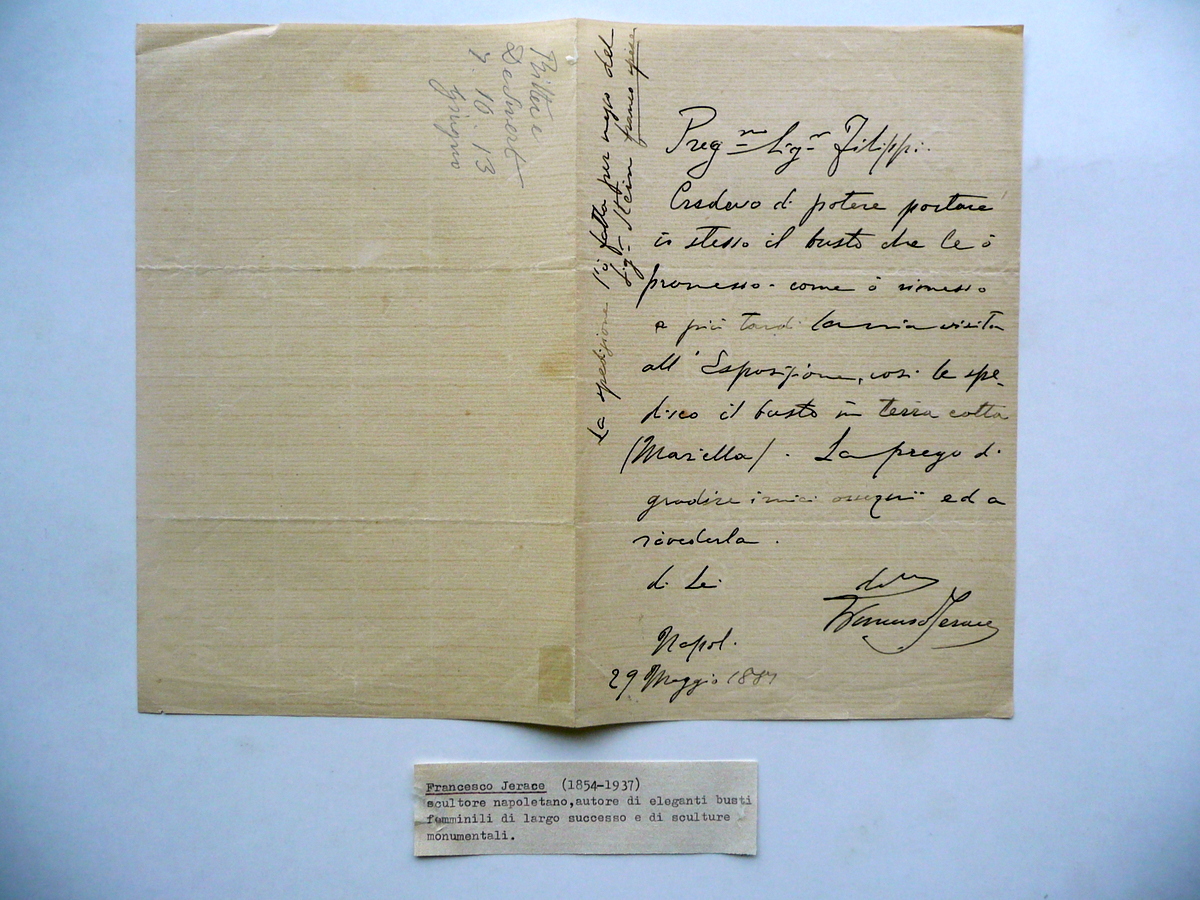 Preg.mo Sig.r Filippi.
Credevo di potere portare
io stesso il busto che le ò
promesso - come ò rimesso
a più tardi la mia visita
all'Esposizione, così le spe-
disco il busto in terra cotta
(Mariella). La prego di
gradire i miei ossequii ed a
rivederla.
di Lei
Francesco Jerace
Napoli
29 Maggio 188
La spedizione l'ò fatta per mezzo del
Sig.r Stein franco spese
7. 10. 13
Francesco Jerace (1854-1937)
scultore napoletano,autore di eleganti busti
femminili di largo successo e di sculture
monumentali.